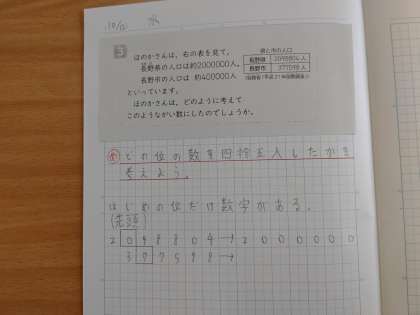 10/12 水
3
ほのかさんは、右の表を見て、
長野県の人口は約2000000人
長野市の人口は 約400000人
といっています。
ほのかさんは、どのように考えて
このようながい数にしたのでしょうか。
県と市の人口
長野県 2098804人
長野市 377598人
め どの位の数を四捨五入したかを
考えよう。
はじめの位だけ数字がある。
(先頭)
2098804→2000000
377598→